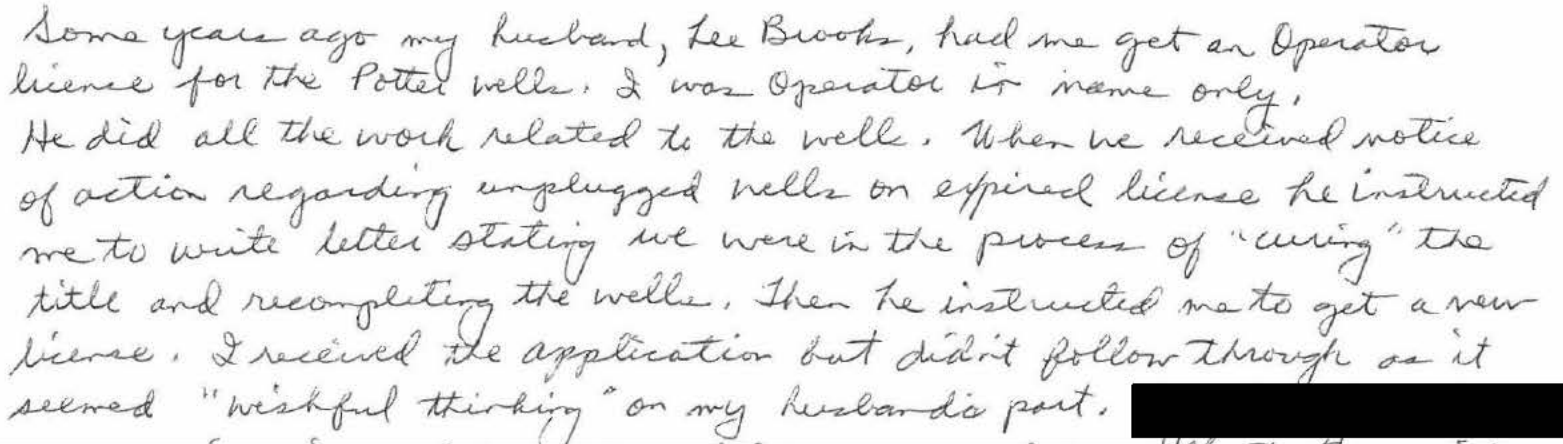 Some years ago my husband, Lee Brooks, had me get an Operator
license for the Potter wells. I was Operator in name only.
He did all the work related to the wells. When we received notice
of action regarding unplugged wells on expired license he instructed
me to write letter stating we were in the process of "curing" the
title and recompleting the wells. Then he instructed me to get a new
license. I received the application but didn't follow through as it
seemed "wishful thinking" on my husband's part.